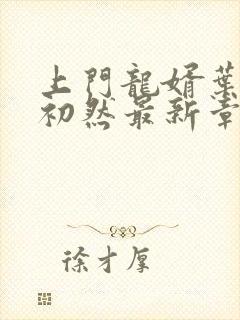 上門龍婿葉
初然最新章
徐才厚